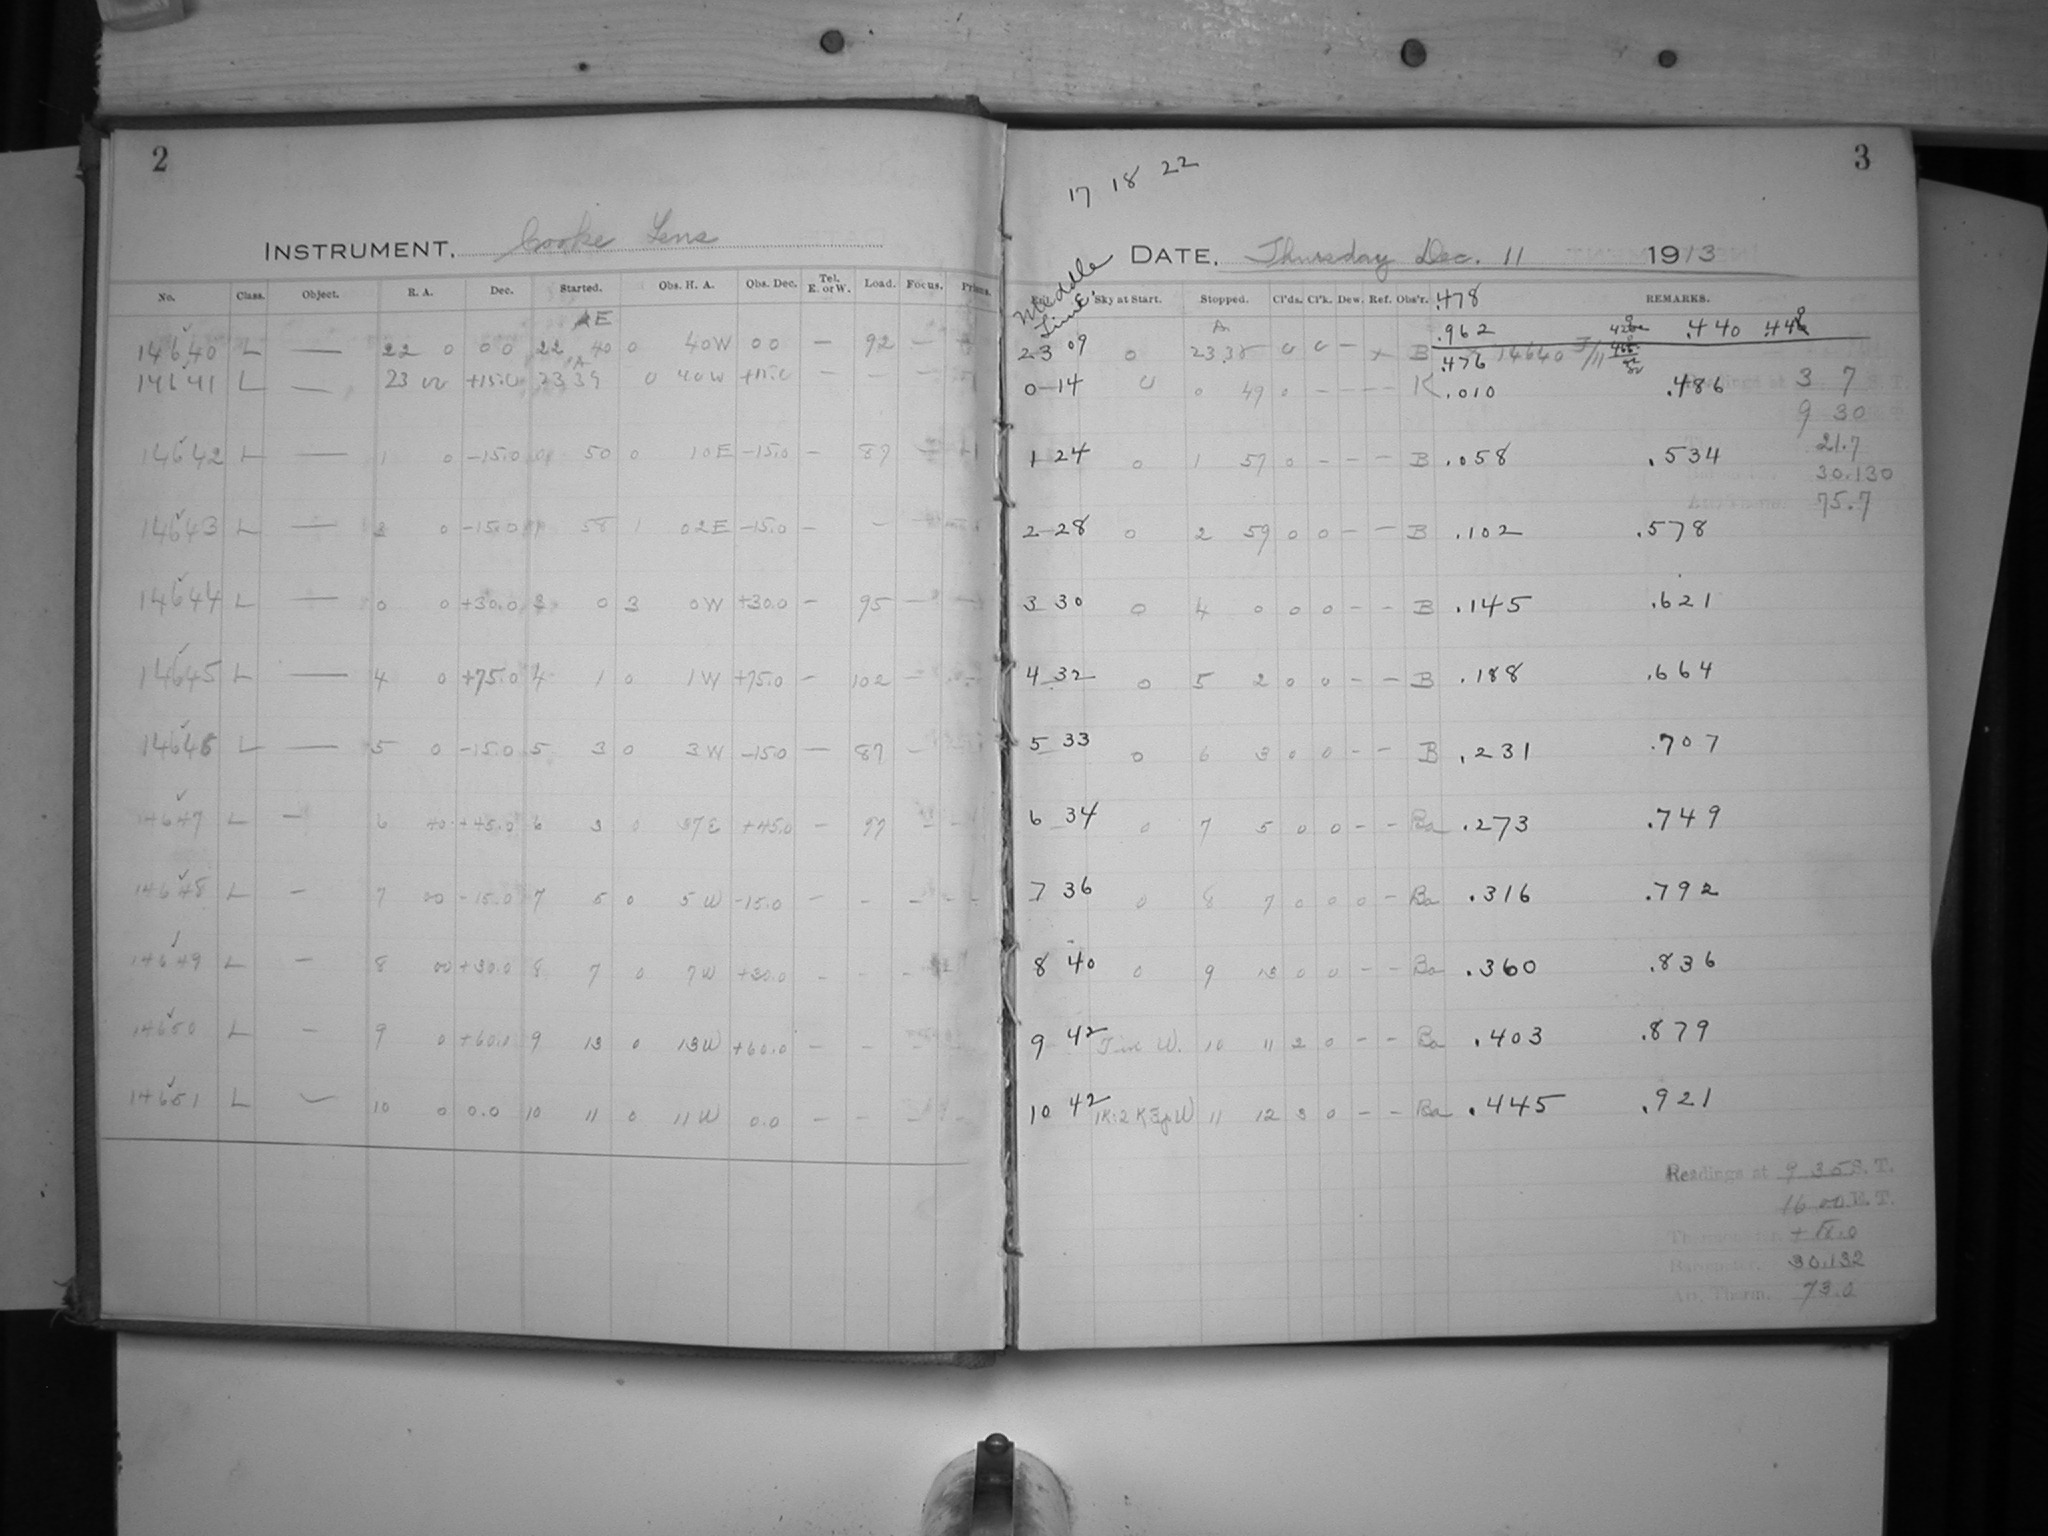 2
INSTRUMENT. Cooke Lens
No. Class. Object. R. A. Dec. Started. Obs. H. A. Obs. Dec. Tel. E. or W. Load. Focus. Prisms.
14640 L — 22 0 00 22 40 0 40W 00 — 92 —
14641 L — 23 00 +15.0 23 39 0 40W +15.0 — — —
14642 L — 1 0 -15.0 0 50 0 10E -15.0 — 87
14643 L — 3 0 -15.0 58 1 02E -15.0 — —
14644 L — 0 0 +30.0 3 0 3 0W +30.0 — 95 — —
14645 L — 4 0 +75.0 4 1 0 1W +75.0 — 102 —
14646 L — 5 0 -15.0 5 3 0 3W -15.0 — 87 —
14647 L — 6 40 +45.0 6 3 0 37E +45.0 — 97 — —
14648 L — 7 00 -15.0 7 5 0 5W -15.0 — — — —
14649 L — 8 00 +30.0 8 7 0 7W +30.0 — — —
14650 L — 9 0 +60.0 9 13 0 13W +60.0 — — — —
14651 L — 10 0 0.0 10 11 0 11W 0.0 — — — —
3
17 18 22
DATE. Thursday Dec. 11 1913
Middle Time
Sky at Start. Stopped. Cl'ds. Cl'k. Dew. Ref. Obs'r. .478 REMARKS.
23 09 0 23 38 0 0 — B .962 .440
.476 14640
0-14 0 0 49 0 — — — K .010 .486 3 7
9 30
1 24 0 1 57 0 — — — B .058 .534 21.7
30.130
75.7
2-28 0 2 59 0 0 — — B .102 .578
3 30 0 4 0 0 0 — — B .145 .621
4 32 0 5 2 0 0 — — B .188 .664
5 33 0 6 3 0 0 — — B .231 .707
6 34 0 7 5 0 0 — — Ba .273 .749
7 36 0 8 7 0 0 0 — Ba .316 .792
8 40 0 9 13 0 0 — — Ba .360 .836
9 42 10 11 2 0 — — Ba .403 .879
10 42 11 12 3 0 — — Ba .445 .921
Readings at 9 35 S. T.
16 00 E. T.
Thermometer.
Barometer. 30.132
Att. Therm. 73.0